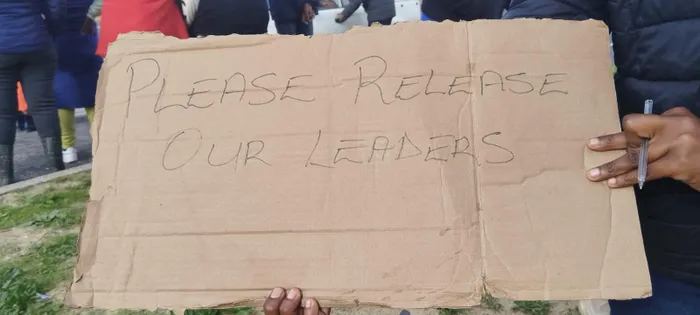 PLEASE RELEASE
OUR LEADERS